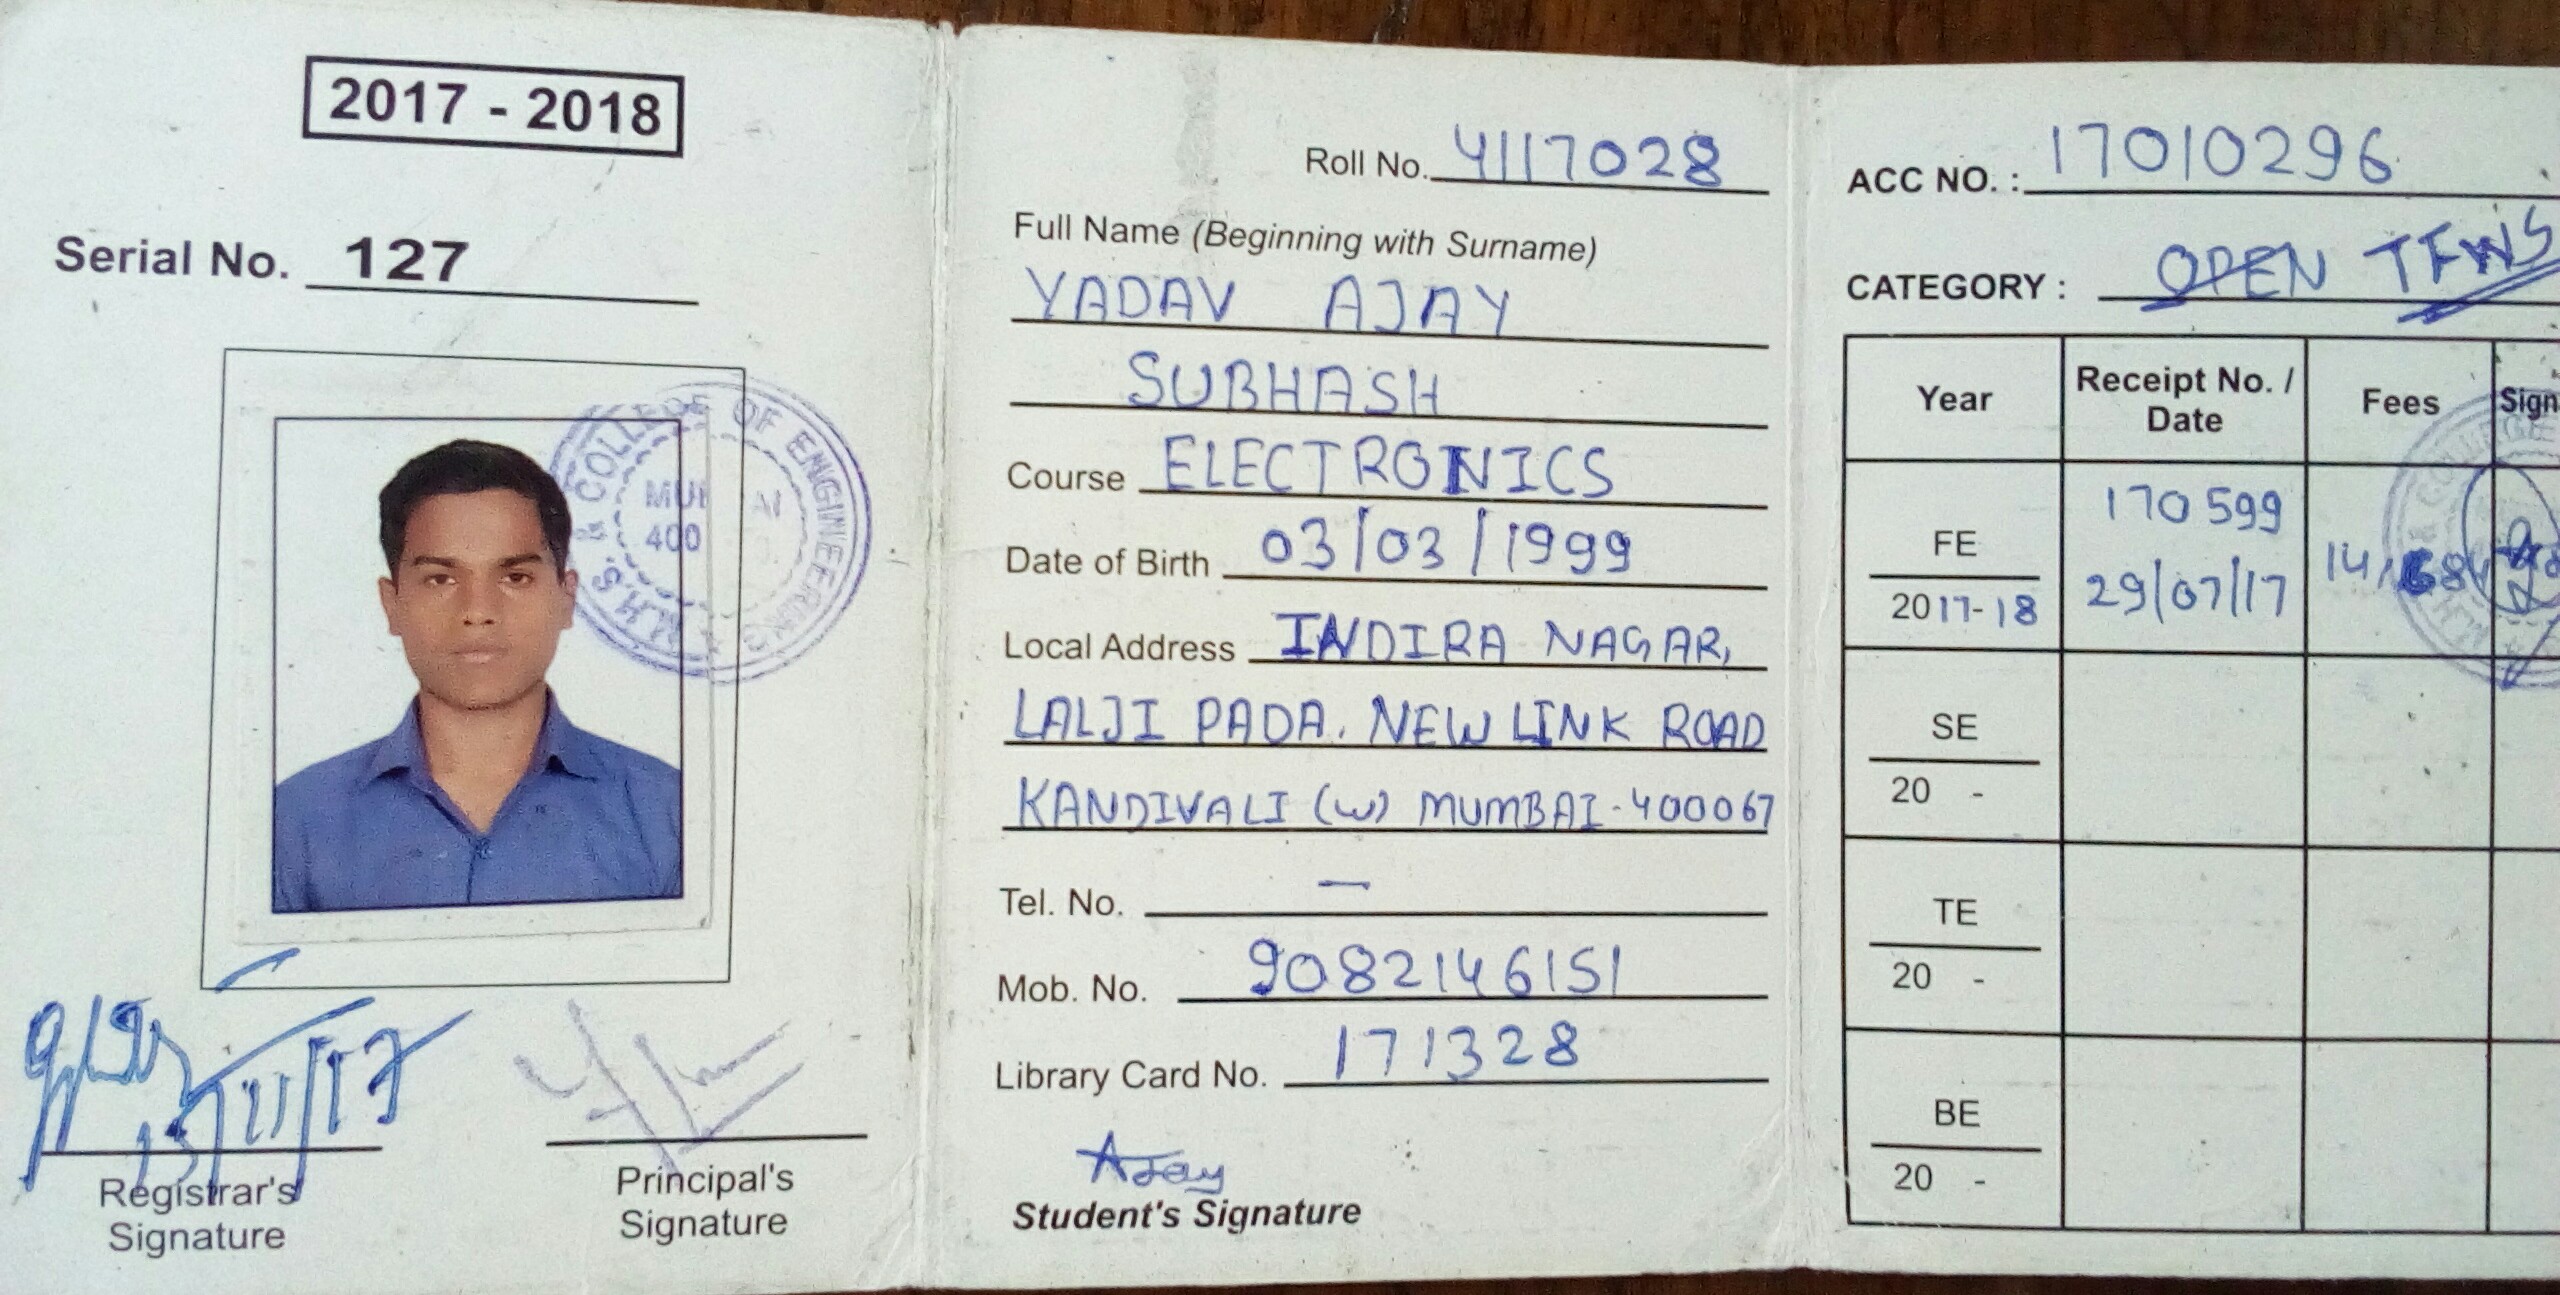 2017 - 2018
Serial No. 127
COLLEGE OF ENGINEERING
M.H.S.S.
400
Registrar's
Signature
13/11/17
Principal's
Signature
Roll No. 4117028
Full Name (Beginning with Surname)
YADAV AJAY
SUBHASH
Course ELECTRONICS
Date of Birth 03/03/1999
Local Address INDIRA NAGAR,
LALJI PADA. NEW LINK ROAD
KANDIVALI (W) MUMBAI-400067
Tel. No. —
Mob. No. 9082146151
Library Card No. 171328
Ajay
Student's Signature
ACC NO. : 17010296
CATEGORY : OPEN TFWS
Year Receipt No. / Date Fees Sign
FE 2017-18 170599 29/07/17
SE 20 -
TE 20 -
BE 20 -